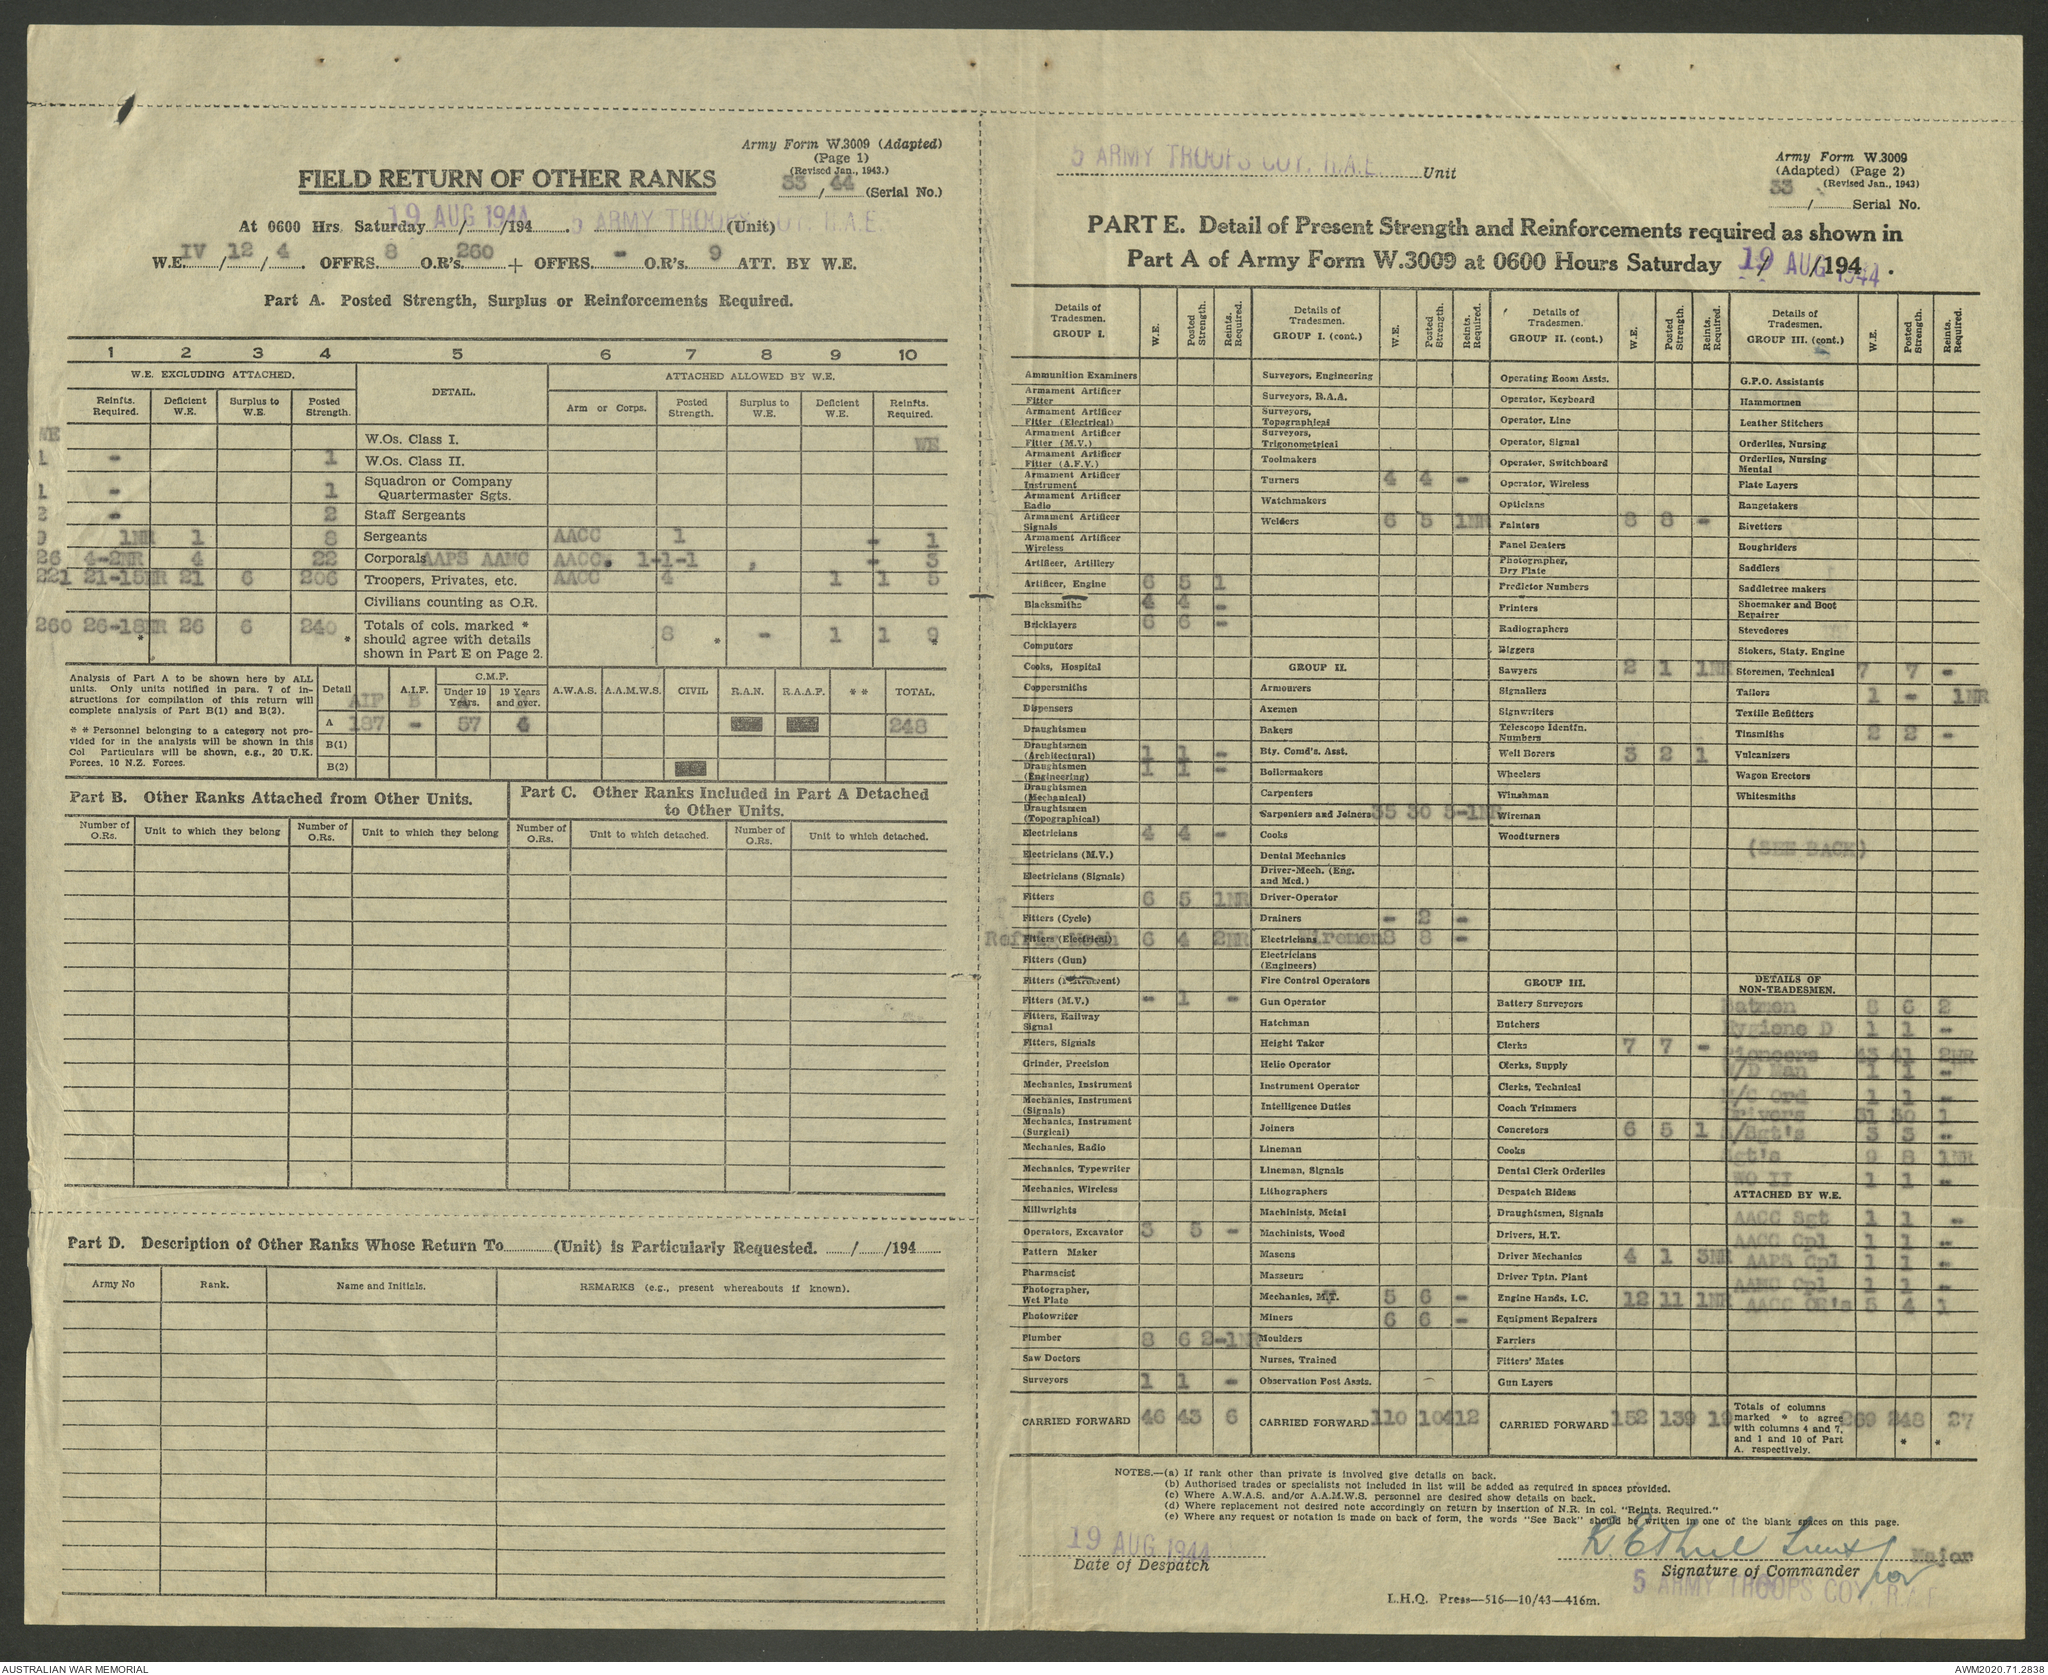 Army Form W.3009 (Adapted)
(Page 1)
(Revised Jan., 1943.)
33/44 (Serial No.)
FIELD RETURN OF OTHER RANKS
At 0600 Hrs. Saturday 19 AUG 1944 /194 . 5 ARMY TROOPS COY. R.A.E. (Unit)
W.E. IV / 12 / 4 . OFFRS. 8 O.R's. 260 + OFFRS. - O.R's. 9 ATT. BY W.E.
Part A. Posted Strength, Surplus or Reinforcements Required.
1 2 3 4 5 6 7 8 9 10
W.E. EXCLUDING ATTACHED. DETAIL. ATTACHED ALLOWED BY W.E.
Reinfts. Required. Deficient W.E. Surplus to W.E. Posted Strength. Arm or Corps. Posted Strength. Surplus to W.E. Deficient W.E. Reinfts. Required.
WE W.Os. Class I. WE
1 - 1 W.Os. Class II.
1 - 1 Squadron or Company Quartermaster Sgts.
2 - 2 Staff Sergeants
9 1NR 1 8 Sergeants AACC 1 - 1
26 4-2NR 4 22 Corporals AAPS AAMC AACC. 1-1-1 - 3
221 21-15NR 21 6 206 Troopers, Privates, etc. AACC 4 1 1 5
Civilians counting as O.R.
260 26-18NR 26 6 240 Totals of cols. marked * should agree with details shown in Part E on Page 2. 8 - 1 1 9
* * * *
Analysis of Part A to be shown here by ALL units. Only units notified in para. 7 of instructions for compilation of this return will complete analysis of Part B(1) and B(2).
* * Personnel belonging to a category not provided for in the analysis will be shown in this Col Particulars will be shown, e.g., 20 U.K. Forces, 10 N.Z. Forces.
Detail A.I.F. C.M.F. Under 19 Years. 19 Years and over. A.W.A.S. A.A.M.W.S. CIVIL R.A.N. R.A.A.F. * * TOTAL.
AIF B A B
A 187 - 57 4 248
B(1)
B(2)
Part B. Other Ranks Attached from Other Units.
Number of O.Rs. Unit to which they belong Number of O.Rs. Unit to which they belong
Part C. Other Ranks Included in Part A Detached to Other Units.
Number of O.Rs. Unit to which detached. Number of O.Rs. Unit to which detached.
Part D. Description of Other Ranks Whose Return To (Unit) is Particularly Requested. / /194
Army No Rank. Name and Initials. REMARKS (e.g., present whereabouts if known).
5 ARMY TROOPS COY. R.A.E. Unit
Army Form W.3009
(Adapted) (Page 2)
(Revised Jan., 1943)
33 / Serial No.
PART E. Detail of Present Strength and Reinforcements required as shown in
Part A of Army Form W.3009 at 0600 Hours Saturday 19 AUG 1944 /194 .
Details of Tradesmen. GROUP I. W.E. Posted Strength. Reints. Required.
Ammunition Examiners
Armament Artificer Fitter
Armament Artificer Fitter (Electrical)
Armament Artificer Fitter (M.V.)
Armament Artificer Fitter (A.F.V.)
Armament Artificer Instrument
Armament Artificer Radio
Armament Artificer Signals
Armament Artificer Wireless
Artificer, Artillery
Artificer, Engine 6 5 1
Blacksmiths 4 4 -
Bricklayers 6 6 -
Computors
Cooks, Hospital
Coppersmiths
Dispensers
Draughtsmen
Draughtsmen (Architectural) 1 1 -
Draughtsmen (Engineering) 1 1 -
Draughtsmen (Mechanical)
Draughtsmen (Topographical)
Electricians 4 4 -
Electricians (M.V.)
Electricians (Signals)
Fitters 6 5 1NR
Fitters (Cycle)
Fitters (Electrical) Refrig Mech 6 4 2NR
Fitters (Gun)
Fitters (Instrument)
Fitters (M.V.) - 1 -
Fitters, Railway Signal
Fitters, Signals
Grinder, Precision
Mechanics, Instrument
Mechanics, Instrument (Signals)
Mechanics, Instrument (Surgical)
Mechanics, Radio
Mechanics, Typewriter
Mechanics, Wireless
Millwrights
Operators, Excavator 3 5 -
Pattern Maker
Pharmacist
Photographer, Wet Plate
Photowriter
Plumber 8 6 2-1NR
Saw Doctors
Surveyors 1 1 -
CARRIED FORWARD 46 43 6
Details of Tradesmen. GROUP I. (cont.) W.E. Posted Strength. Reints. Required.
Surveyors, Engineering
Surveyors, R.A.A.
Surveyors, Topographical
Surveyors, Trigonometrical
Toolmakers
Turners 4 4 -
Watchmakers
Welders 6 5 1NR
GROUP II.
Armourers
Axemen
Bakers
Bty. Comd's. Asst.
Boilermakers
Carpenters
Carpenters and Joiners 35 30 5-1NR
Cooks
Dental Mechanics
Driver-Mech. (Eng. and Med.)
Driver-Operator
Drainers - 2 -
Electricians Wiremen 8 8 -
Electricians (Engineers)
Fire Control Operators
Gun Operator
Hatchman
Height Taker
Helio Operator
Instrument Operator
Intelligence Duties
Joiners
Lineman
Lineman, Signals
Lithographers
Machinists, Metal
Machinists, Wood
Masons
Masseurs
Mechanics, M.T. 5 6 -
Miners 6 6 -
Moulders
Nurses, Trained
Observation Post Assts.
CARRIED FORWARD 110 104 12
Details of Tradesmen. GROUP II. (cont.) W.E. Posted Strength. Reints. Required.
Operating Room Assts.
Operator, Keyboard
Operator, Line
Operator, Signal
Operator, Switchboard
Operator, Wireless
Opticians
Painters 8 8 -
Panel Beaters
Photographer, Dry Plate
Predictor Numbers
Printers
Radiographers
Riggers
Sawyers 2 1 1NR
Signallers
Signwriters
Telescope Identfn. Numbers
Well Borers 3 2 1
Wheelers
Winshman
Wireman
Woodturners
GROUP III.
Battery Surveyors
Butchers
Clerks 7 7 -
Clerks, Supply
Clerks, Technical
Coach Trimmers
Concretors 6 5 1
Cooks
Dental Clerk Orderlies
Despatch Riders
Draughtsmen, Signals
Drivers, H.T.
Driver Mechanics 4 1 3NR
Driver Tptn. Plant
Engine Hands, I.C. 12 11 1NR
Equipment Repairers
Farriers
Fitters' Mates
Gun Layers
CARRIED FORWARD 152 139 19
Details of Tradesmen. GROUP III. (cont.) W.E. Posted Strength. Reints. Required.
G.P.O. Assistants
Hammormen
Leather Stitchers
Orderlies, Nursing
Orderlies, Nursing Mental
Plate Layers
Rangetakers
Rivetters
Roughriders
Saddlers
Saddletree makers
Shoemaker and Boot Repairer
Stevedores
Stokers, Staty. Engine
Storemen, Technical 7 7 -
Tailors 1 - 1NR
Textile Refitters
Tinsmiths 2 2 -
Vulcanizers
Wagon Erectors
Whitesmiths
(SEE BACK)
DETAILS OF NON-TRADESMEN.
Batmen 8 6 2
Hygiene D 1 1 -
Pioneers 43 41 2NR
W/D Man 1 1 -
M/C Ord 1 1 -
Drivers 31 30 1
S/Sgt's 3 3 -
Sgt's 9 8 1NR
WO II 1 1 -
ATTACHED BY W.E.
AACC Sgt 1 1 -
AACC Cpl 1 1 -
AAPS Cpl 1 1 -
AAMC Cpl 1 1 -
AACC OR's 5 4 1
Totals of columns marked * to agree with columns 4 and 7, and 1 and 10 of Part A. respectively. 269 248 27
* *
NOTES.—(a) If rank other than private is involved give details on back.
(b) Authorised trades or specialists not included in list will be added as required in spaces provided.
(c) Where A.W.A.S. and/or A.A.M.W.S. personnel are desired show details on back.
(d) Where replacement not desired note accordingly on return by insertion of N.R. in col. "Reints. Required."
(e) Where any request or notation is made on back of form, the words "See Back" should be written in one of the blank spaces on this page.
19 AUG 1944
Date of Despatch
Major
Signature of Commander for
5 ARMY TROOPS COY. R.A.E.
L.H.Q. Press—516—10/43—416m.
AUSTRALIAN WAR MEMORIAL
AWM2020.71.2838